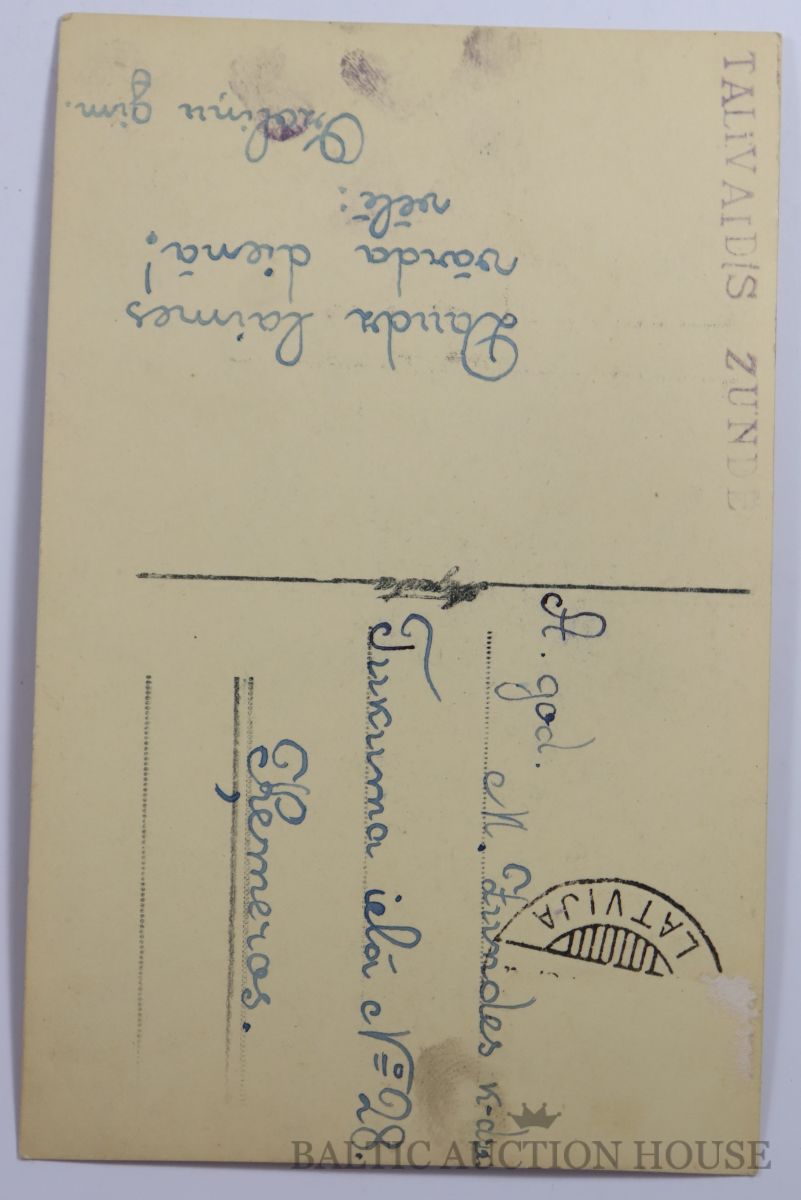 TALiVALDIS ZUNDE
Daudz laimes
vārda dienā!
vēlē:
Ozoliņu gim.
A. god.
M. Zundes k-dze
Tukuma ielā № 28.
Ķemeros.
LATVIJA
BALTIC AUCTION HOUSE